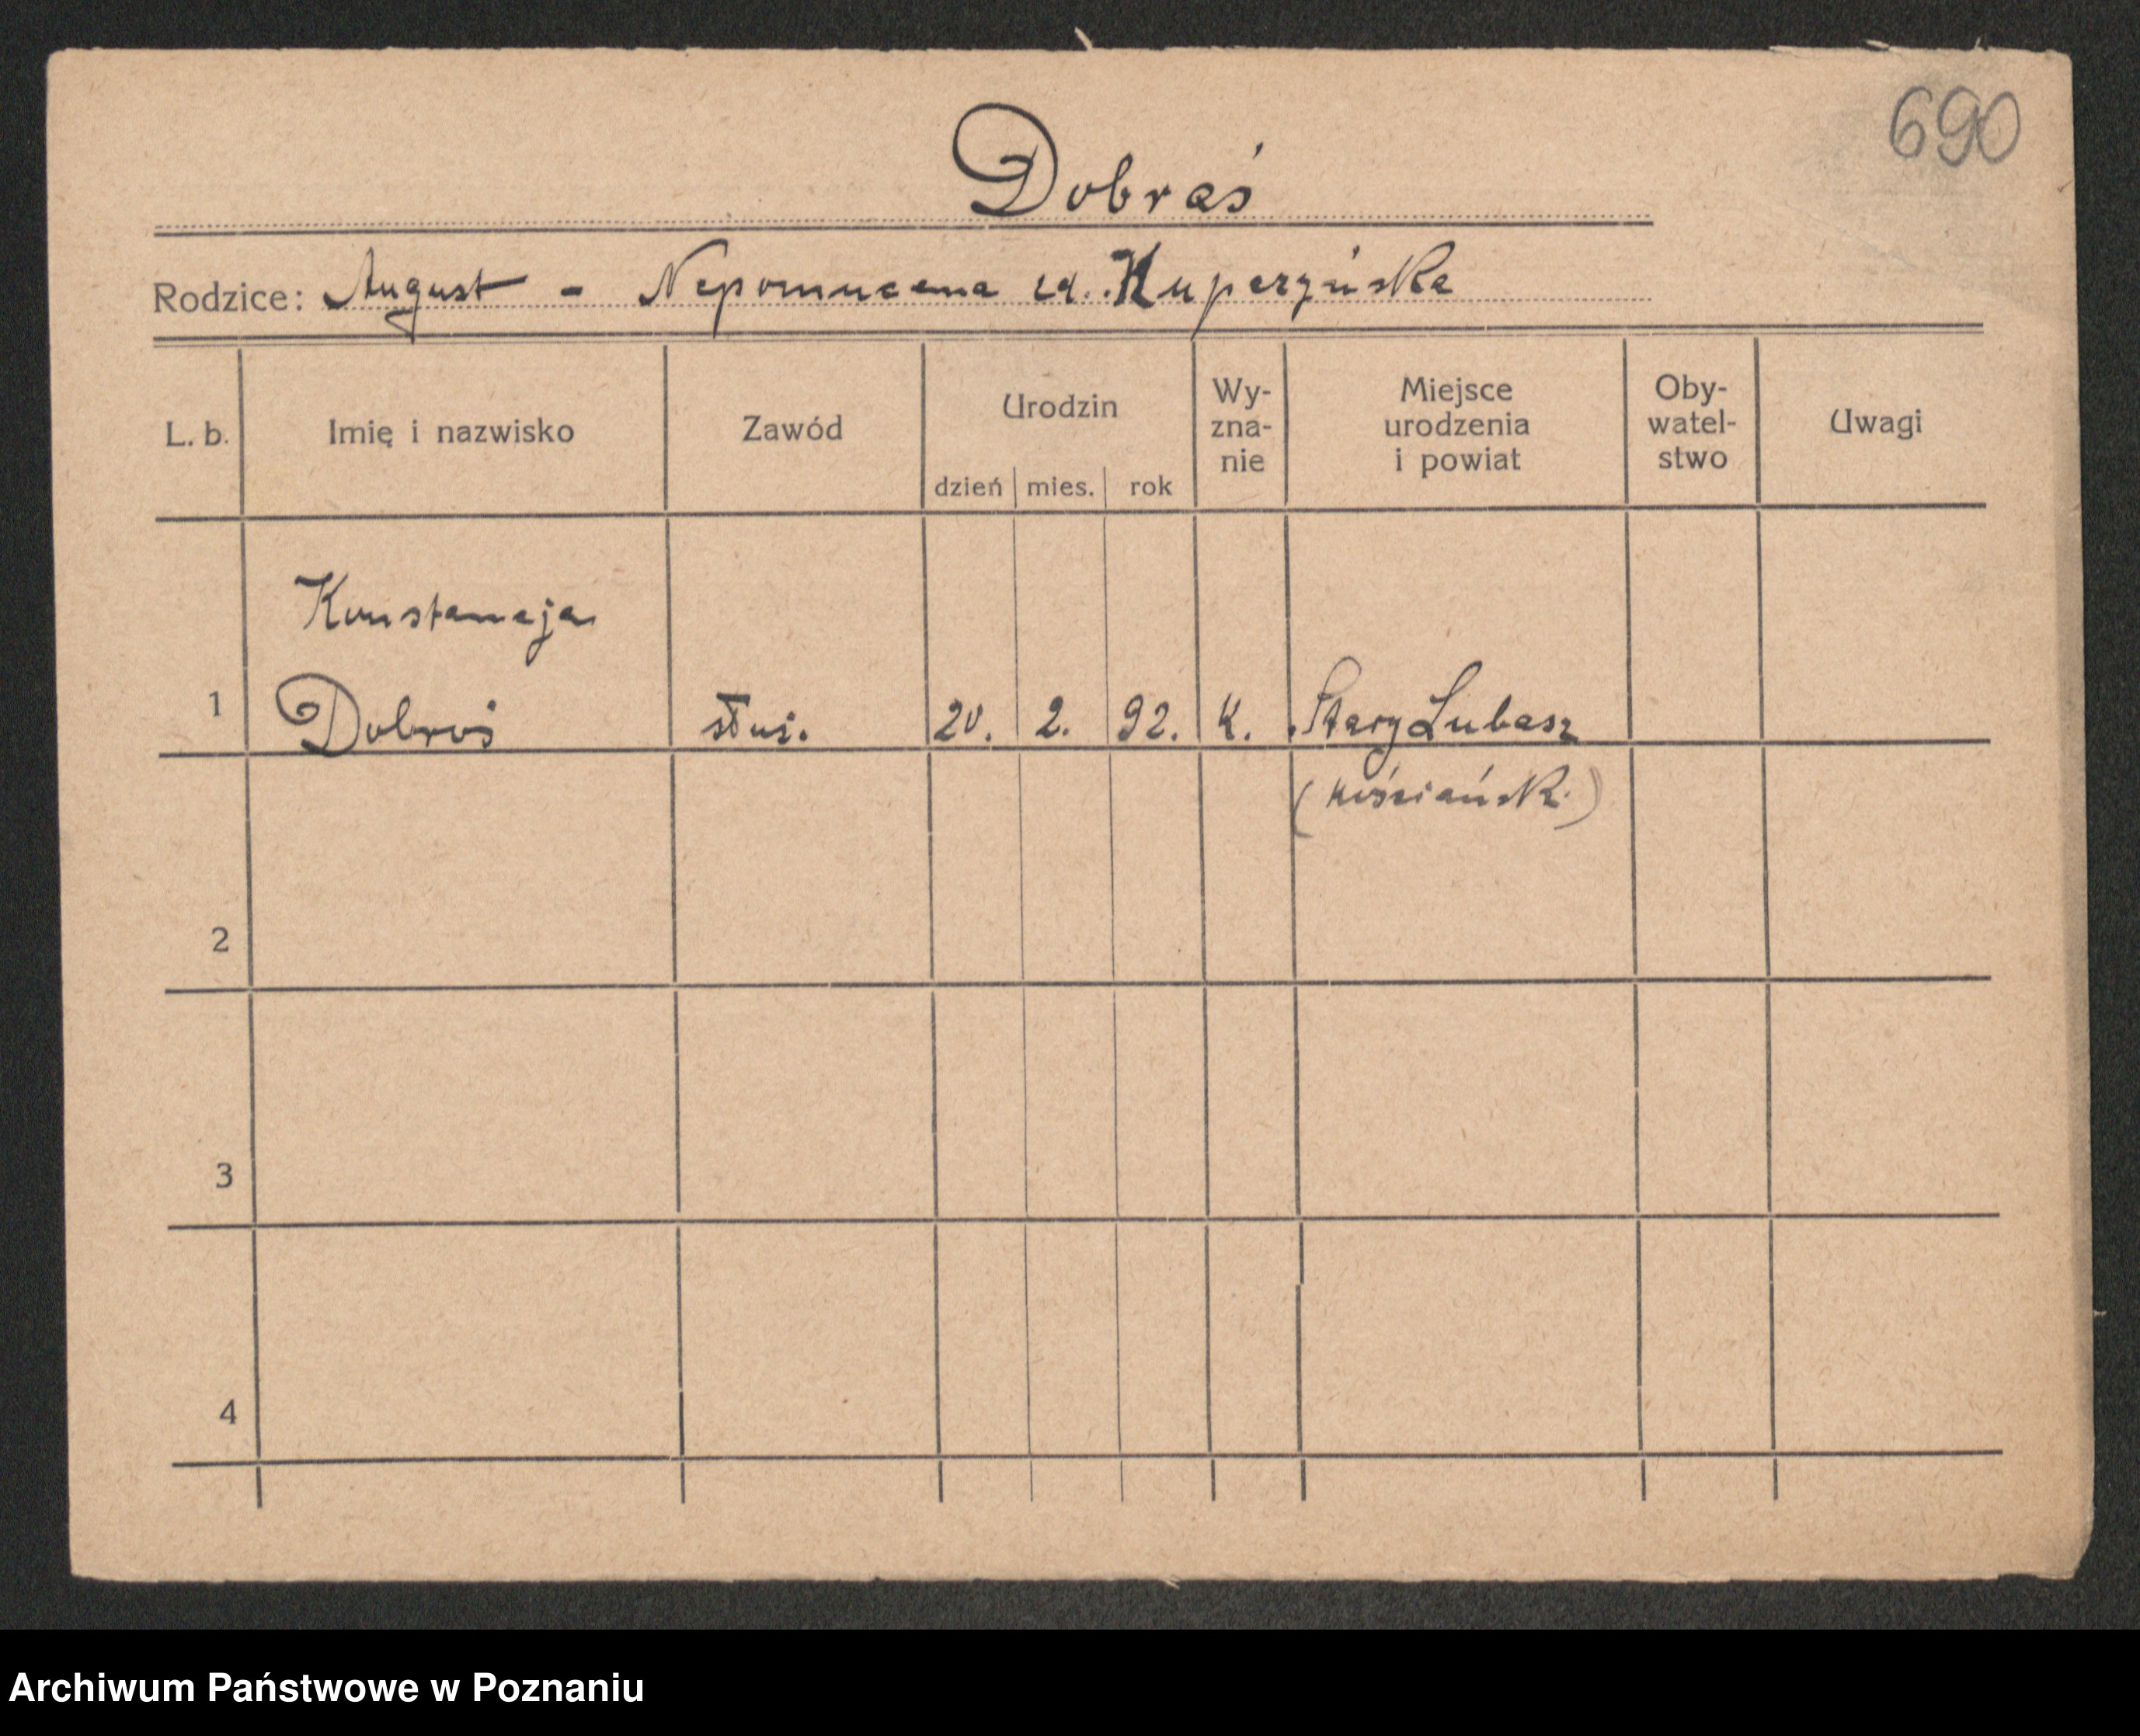 690
Dobraś
Rodzice: August - Nepomucena zd. Kuperzyńska
L. b. Imię i nazwisko Zawód Urodzin dzień mies. rok Wy- zna- nie Miejsce urodzenia i powiat Oby- watel- stwo Uwagi
Konstancja
1 Dobroś służ. 20. 2. 92. k. Stary Lubosz
(kościańsk.)
2
3
4
Archiwum Państwowe w Poznaniu